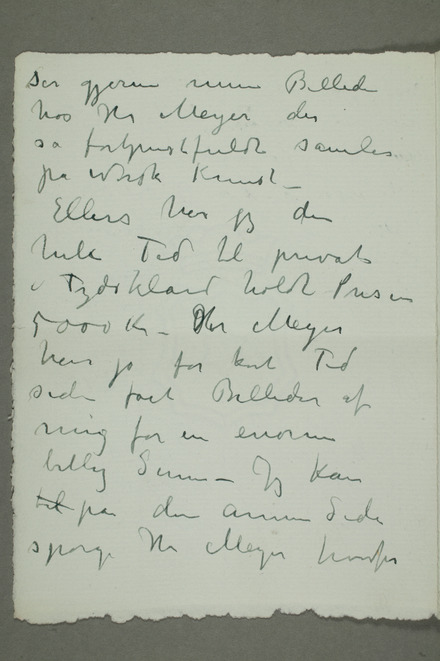 ser gjerne mine Billeder
hos Hr Meyer der
så fortjenstfuldt samler
på norsk Kunst –
Ellers har jeg den
hele Tid til private
i Tydskland holdt Prisen
5000 Kr – Hr Meyer
har jo for kort Tid
siden fået Billeder af
mig for en enorm
billig Sum – Jeg kan
til på den anden Side
spørge Hr Meyer hvorfor